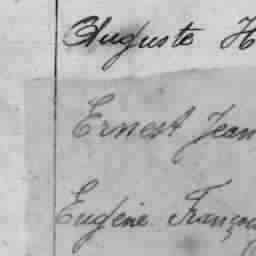 Auguste H
Ernest Jean
Eugène Franço